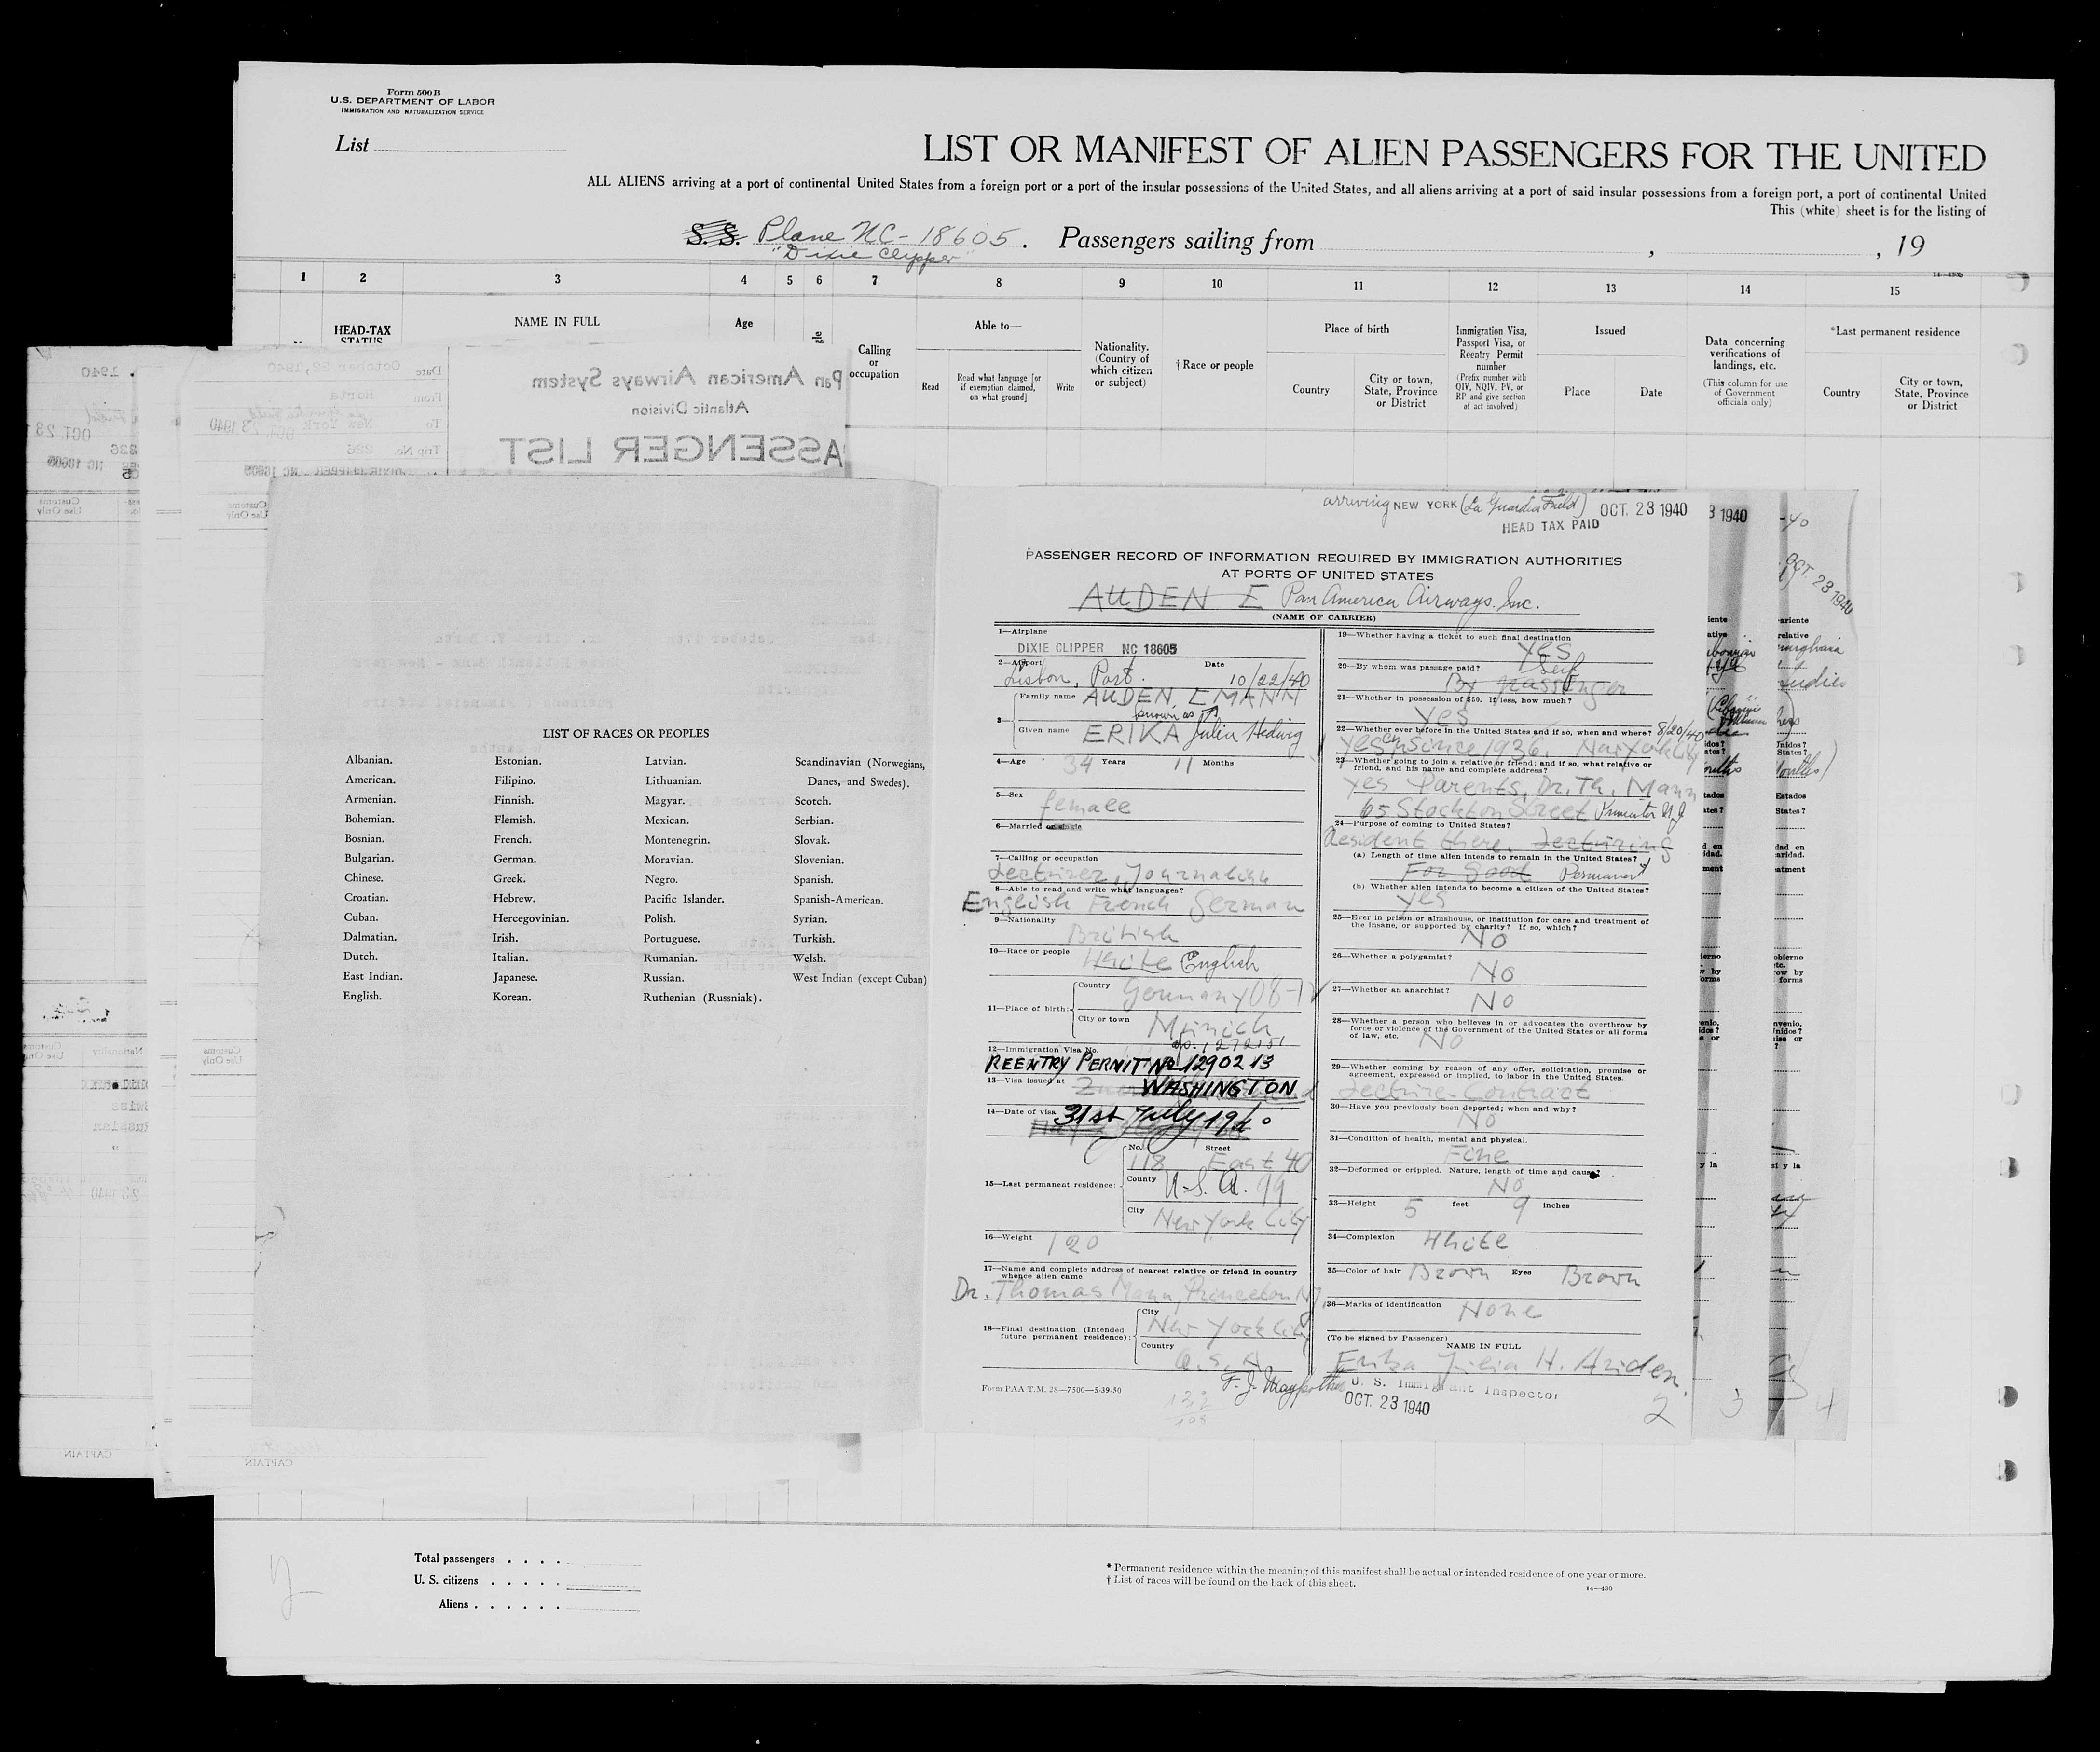 Form 500 B
U.S. DEPARTMENT OF LABOR
IMMIGRATION AND NATURALIZATION SERVICE
List
LIST OR MANIFEST OF ALIEN PASSENGERS FOR THE UNITED
ALL ALIENS arriving at a port of continental United States from a foreign port or a port of the insular possessions of the United States, and all aliens arriving at a port of said insular possessions from a foreign port, a port of continental United
This (white) sheet is for the listing of
S. S. Plane NC-18605. Passengers sailing from , , 19
"Dixie Clipper"
1 2 3 4 5 6 7 8 9 10 11 12 13 14 15
HEAD-TAX STATUS
NAME IN FULL
Age
Calling or occupation
Able to—
Read
Read what language [or if exemption claimed, on what ground]
Write
Nationality. (Country of which citizen or subject)
† Race or people
Place of birth
Country
City or town, State, Province or District
Immigration Visa, Passport Visa, or Reentry Permit number
(Prefix number with QIV, NQIV, PV, or RP and give section of act involved)
Issued
Place
Date
Data concerning verifications of landings, etc.
(This column for use of Government officials only)
*Last permanent residence
Country
City or town, State, Province or District
Pan American Airways System
Atlantic Division
PASSENGER LIST
Date October 23, 1940
From Horta
To New York OCT 23 1940
Trip No. 226
DIXIE CLIPPER NC 18605
Customs Use Only
CAPTAIN
LIST OF RACES OR PEOPLES
Albanian.
American.
Armenian.
Bohemian.
Bosnian.
Bulgarian.
Chinese.
Croatian.
Cuban.
Dalmatian.
Dutch.
East Indian.
English.
Estonian.
Filipino.
Finnish.
Flemish.
French.
German.
Greek.
Hebrew.
Hercegovinian.
Irish.
Italian.
Japanese.
Korean.
Latvian.
Lithuanian.
Magyar.
Mexican.
Montenegrin.
Moravian.
Negro.
Pacific Islander.
Polish.
Portuguese.
Rumanian.
Russian.
Ruthenian (Russniak).
Scandinavian (Norwegians,
Danes, and Swedes).
Scotch.
Serbian.
Slovak.
Slovenian.
Spanish.
Spanish-American.
Syrian.
Turkish.
Welsh.
West Indian (except Cuban)
arriving NEW YORK (La Guardia Field) OCT. 23 1940
HEAD TAX PAID
PASSENGER RECORD OF INFORMATION REQUIRED BY IMMIGRATION AUTHORITIES
AT PORTS OF UNITED STATES
AUDEN E Pan America Airways. Inc.
(NAME OF CARRIER)
1—Airplane
DIXIE CLIPPER NC 18605
2—Airport Date
Lisbon, Port. 10/22/40
3— Family name AUDEN, E MANN
known as
Given name ERIKA Julia Hedwig
4—Age 34 Years 11 Months
5—Sex female
6—Married or single
7—Calling or occupation
Lecturer, Journalist
8—Able to read and write what languages?
English French German
9—Nationality
British
10—Race or people White English
11—Place of birth:
Country Germany
City or town Munich
12—Immigration Visa No.
REENTRY PERMIT No 1290213
13—Visa issued at WASHINGTON
14—Date of visa 31st July 1940
15—Last permanent residence:
No. Street
118 East 40
County U.S.A. 99
City New York City
16—Weight 120
17—Name and complete address of nearest relative or friend in country
whence alien came
Dr. Thomas Mann, Princeton NJ
18—Final destination (Intended
future permanent residence):
City New York City
Country U.S.A
Form PAA T.M. 28—7500—5-39-50
19—Whether having a ticket to such final destination
YES
20—By whom was passage paid? Self
By Passenger
21—Whether in possession of $50. If less, how much?
Yes
22—Whether ever before in the United States and if so, when and where? 8/20/40
Yes since 1936, New York City
23—Whether going to join a relative or friend; and if so, what relative or
friend, and his name and complete address?
Yes Parents, Dr. Th. Mann
65 Stockton Street Princeton N.J
24—Purpose of coming to United States?
Resident there. Lecturing
(a) Length of time alien intends to remain in the United States?
For good Permanent
(b) Whether alien intends to become a citizen of the United States?
Yes
25—Ever in prison or almshouse, or institution for care and treatment of
the insane, or supported by charity? If so, which?
No
26—Whether a polygamist?
No
27—Whether an anarchist?
No
28—Whether a person who believes in or advocates the overthrow by
force or violence of the Government of the United States or all forms
of law, etc. No
29—Whether coming by reason of any offer, solicitation, promise or
agreement, expressed or implied, to labor in the United States.
Lecture-Contract
30—Have you previously been deported; when and why?
No
31—Condition of health, mental and physical.
Fine
32—Deformed or crippled. Nature, length of time and cause?
No
33—Height 5 feet 9 inches
34—Complexion White
35—Color of hair Brown Eyes Brown
36—Marks of identification None
(To be signed by Passenger)
NAME IN FULL
Erika Julia H. Auden.
U. S. Immigrant Inspector
OCT. 23 1940
2
3
4
3 1940
OCT. 23 1940
Total passengers . . . .
U. S. citizens . . . . .
Aliens . . . . . .
* Permanent residence within the meaning of this manifest shall be actual or intended residence of one year or more.
† List of races will be found on the back of this sheet.
14—430